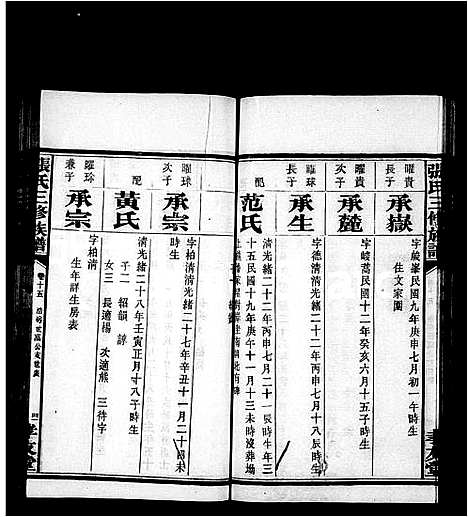 張氏三修族譜
曜貴
長子
承嶽
字峻峯民國九年庚申七月初一午時生
住文家園
曜貴
次子
承麓
字峻蒿民國十二年癸亥六月十五子時生
曜球
長子
承生
字德清清光緒二十二年丙申七月十八辰時生
配
范氏
清光緒二十二年丙申七月十一辰時生年三
十五民國十九年庚午十一月十三未時沒葬
曜球
次子
承宗
字柏清清光緒二十七年辛丑十一月二十四未
時生
配
黃氏
清光緒二十八年壬寅正月十八子時生
子二 紹韻 諄
女三 長適楊 次適熊 三待字
曜珍
兼子
承宗
字柏清
生年詳生房表
張氏三修族譜
卷十五
孝友堂